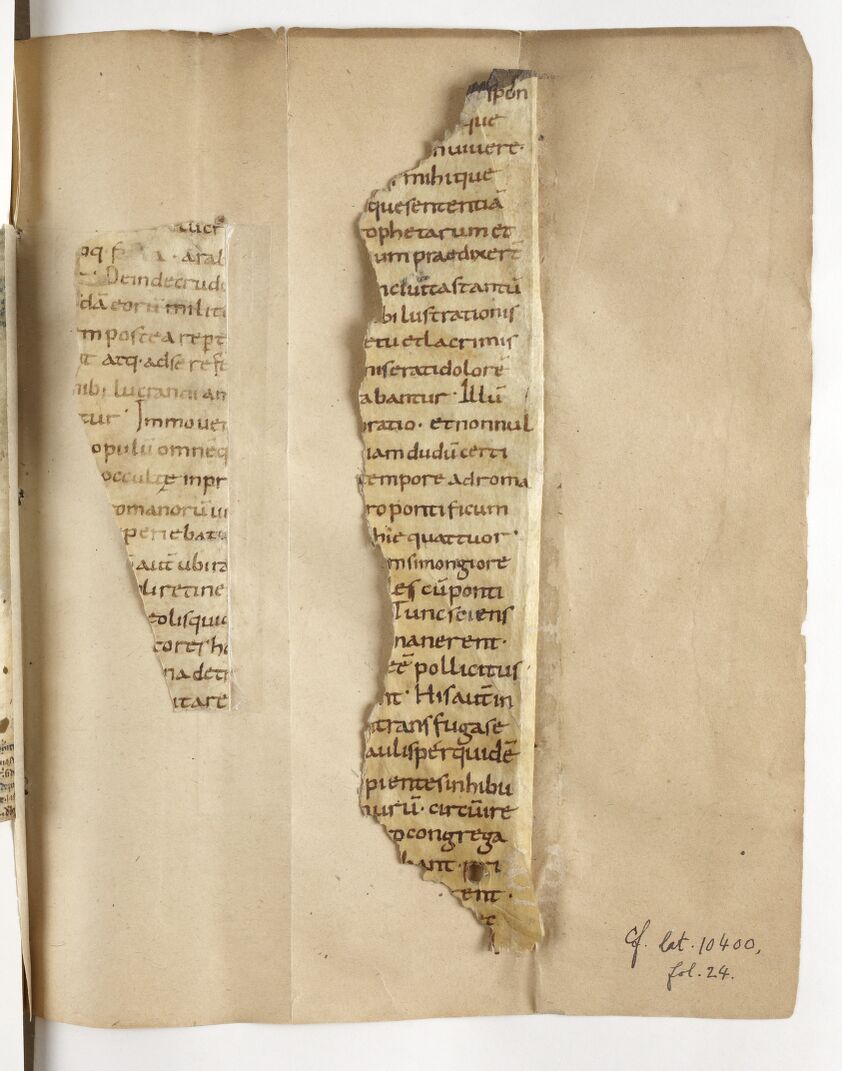 oq f
Deindecrude
dā eorū milit
m postea rept
t atq. adse refe
nibi lucrandi an
tur. Immo uer
opulū omneq
occulte inpr
omanorū ui
periebatu
aut̄ ubira
li retine
olisqui
torer ho
na detr
itare
spon
que
nuiuere.
mihique
quesententiā
ophetarum et
um praedixert̄
ncluītastantū
bi lustrationis
etu et lacrimis
miserati dolorē
abantur. Illū
ratio. et nonnul
iam dudū certi
tempore ad roma
ro pontificum
hie quattuor.
msimongiore
les cū ponti
Tunc sciens
manerent.
etē pollicitus
nt. His aut̄ in
transfugase
aulisper quidē
pientes inhibu
turū. circūire
o congrega
bant.
ent.
Cf. lat. 10400,
fol. 24.